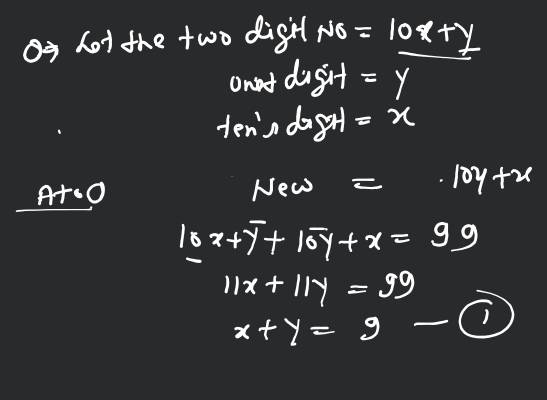 Let the two digit No = 10x+y
digit = y
ten's digit = x
New = 10y+x
10x+y+10y+x = 99
11x+11y = 99
x+y = 9 — ①